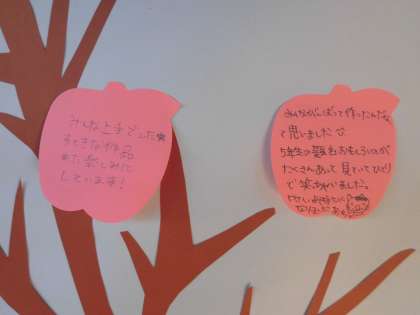 みんな上手でした★
すてきな作品
また楽しみに
しています!
みんながんばって作ったんだな
て思いました
5年生の題名おもしろいのが
たくさんあって見ていてひとり
で笑ちゃいました。